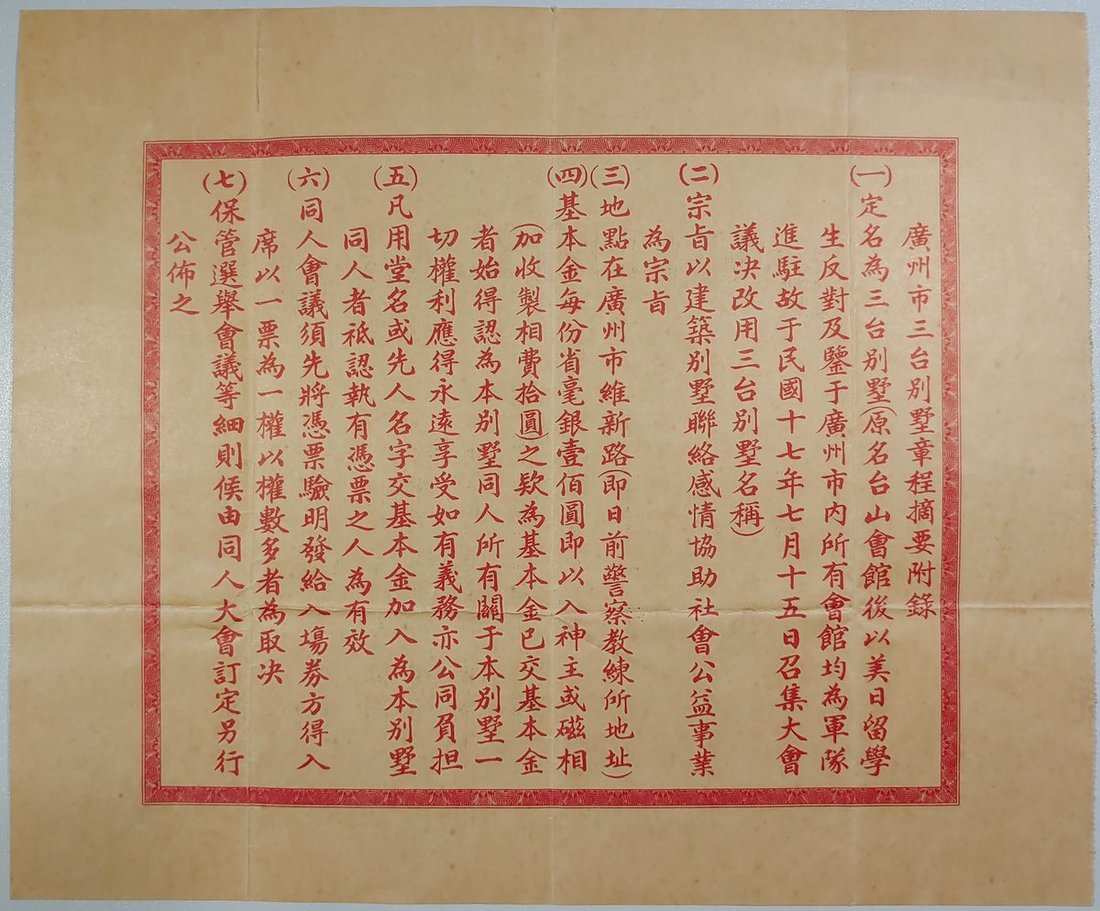 廣州市三台別墅章程摘要附錄
(一)定名為三台別墅(原名台山會館後以美日留學
生反對及鑒于廣州市內所有會館均為軍隊
進駐故于民國十七年七月十五日召集大會
議决改用三台別墅名稱)
(二)宗旨以建築別墅聯絡感情協助社會公益事業
為宗旨
(三)地點在廣州市維新路(即日前警察教練所地址)
(四)基本金每份省毫銀壹佰圓即以入神主或磁相
(加收製相費拾圓)之欵為基本金已交基本金
者始得認為本別墅同人所有關于本別墅一
切權利應得永遠享受如有義務亦公同負担
(五)凡用堂名或先人名字交基本金加入為本別墅
同人者祗認執有憑票之人為有效
(六)同人會議須先將憑票驗明發給入塲券方得入
席以一票為一權以權數多者為取决
(七)保管選舉會議等細則候由同人大會訂定另行
公佈之